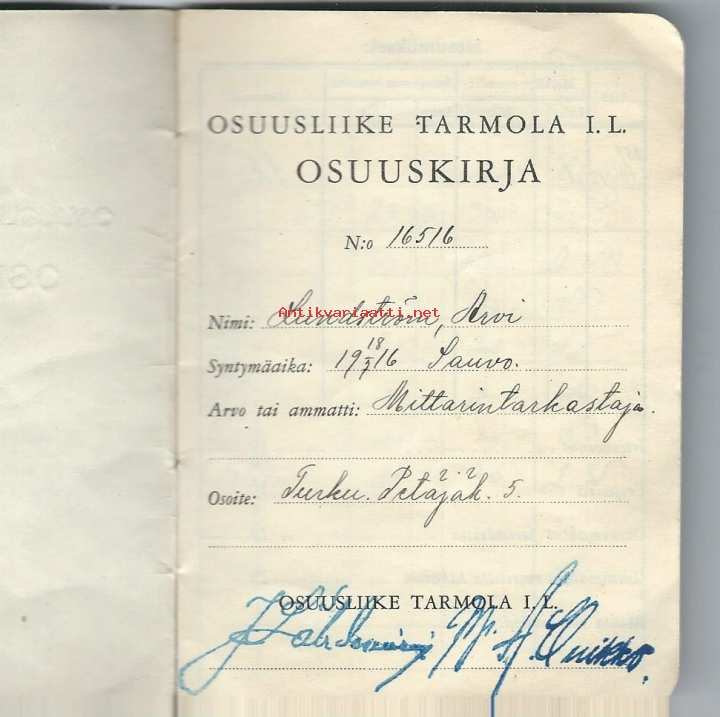 OSUUSLIIKE TARMOLA I. L.
OSUUSKIRJA
N:o 16516
Antikvariaatti.net
Nimi: Lundström, Arvi
Syntymäaika: 19 18/3 16 Sauvo.
Arvo tai ammatti: Mittarintarkastaja.
Osoite: Turku. Petäjäk. 5.
OSUUSLIIKE TARMOLA I. L.